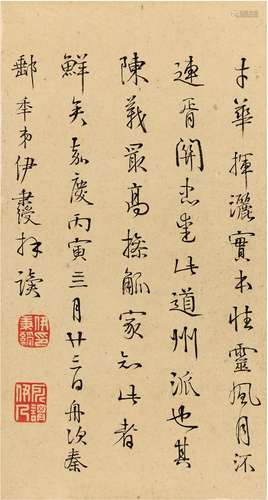 才華揮灑實本性靈風月流
連胥關忠愛此道州派也其
陳義最高操觚家知此者
鮮矣嘉慶丙寅三月廿二日舟次秦
郵年弟伊秉綬拜讀